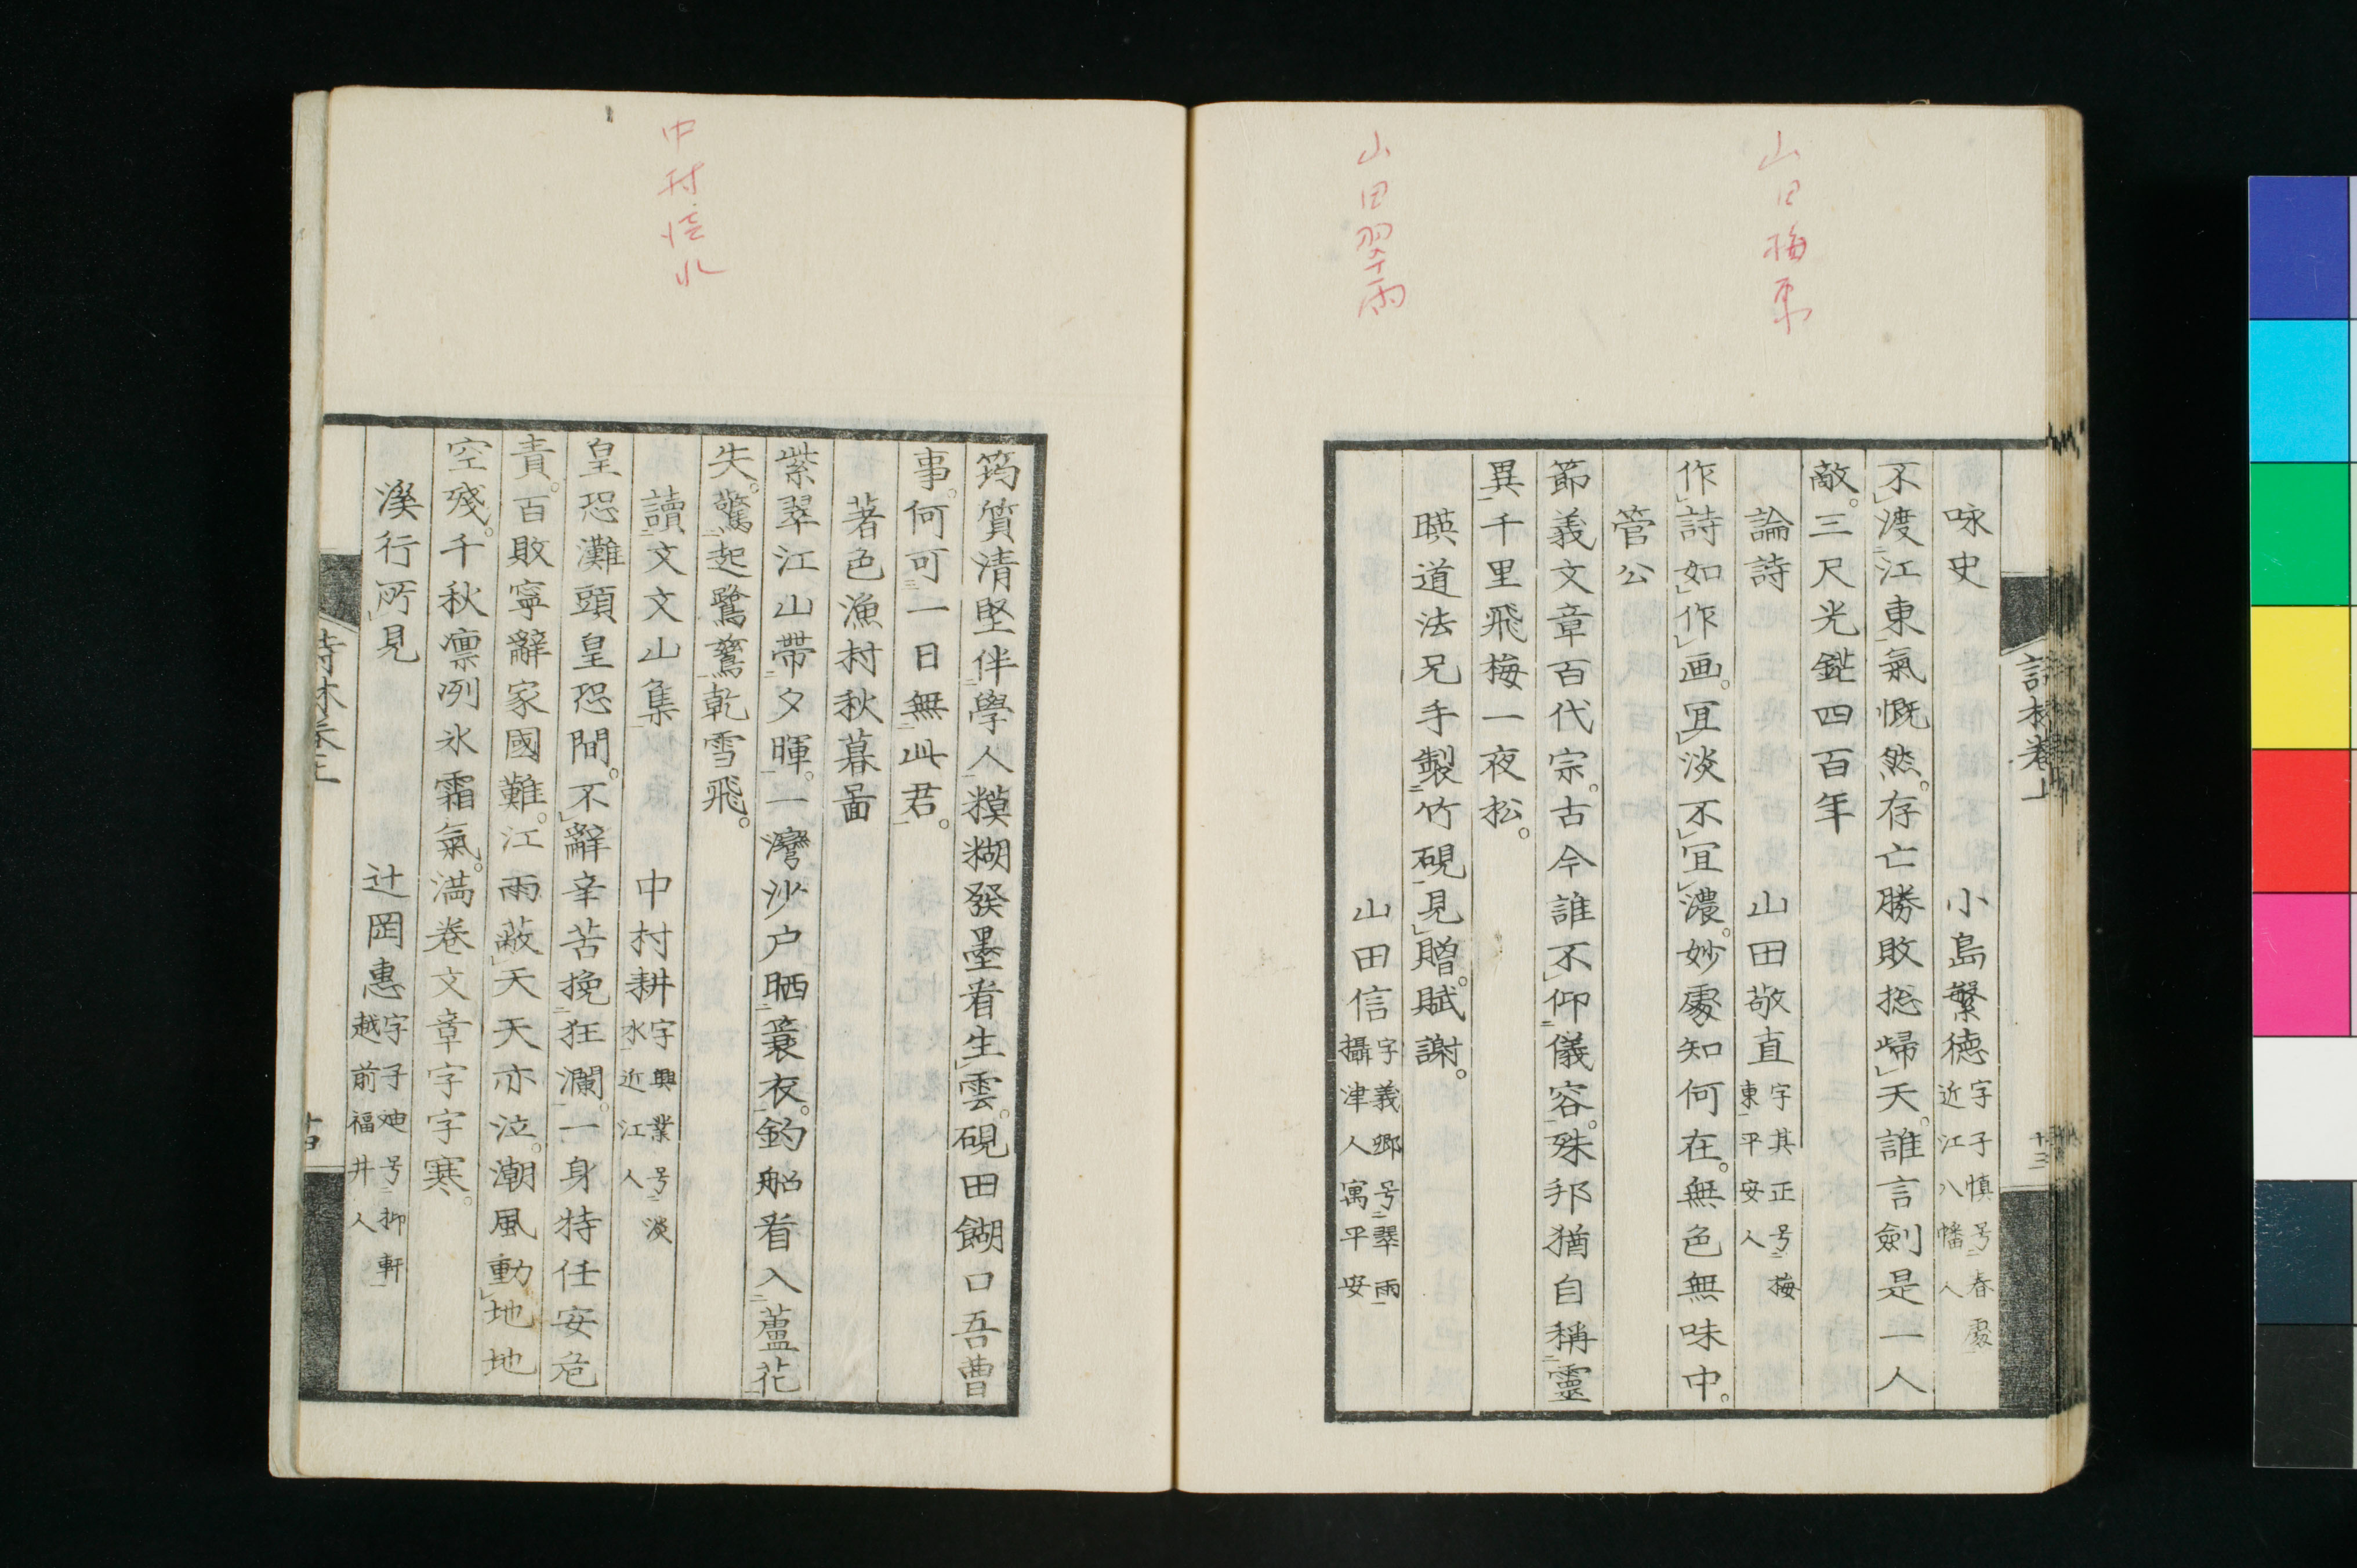 山田梅東
山田翠雨
詩林卷上
十三
咏史　小島繫徳字子慎号春處近江八幡人
不渡江東氣慨然。存亡勝敗捴歸天。誰言劍是一人
敵。三尺光鋩四百年
論詩　山田敬直字其正号梅東平安人
作詩如作画。宜淡不宜濃。妙處知何在。無色無味中。
菅公
節義文章百代宗。古今誰不仰儀容。殊邦猶自稱靈
異千里飛梅一夜松。
暎道法兄手製竹硯見贈。賦謝。
山田信字義郷号翠雨攝津人寓平安
中村
筠質清堅伴學人糢糊發墨看生雲。硯田餬口吾曹
事。何可一日無此君。
著色漁村秋暮啚
紫翠江山帶夕暉。一灣沙户晒蓑衣。釣船看入蘆花
失。驚起鷺鷥乾雪飛。
讀文文山集　中村耕字興業号淡水近江人
皇恐灘頭皇恐間。不辭辛苦挽狂瀾。一身特任安危
責。百敗寧辭家國難。江雨蔽天天亦泣。潮風動地地
空殘。千秋凛冽氷霜氣。満卷文章字字寒。
溪行所見　辻岡惠字子廸号抑軒越前福井人
詩林卷上